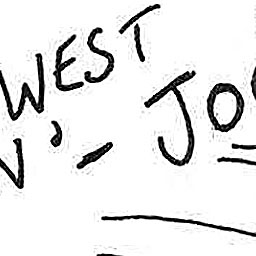 WEST
N' - JO